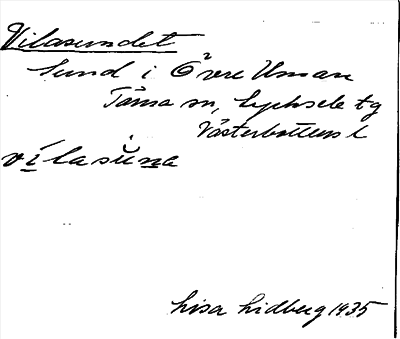 Vilasundet
Sund i Övre Uman
Tärna sn, Lycksele tg
Västerbottens l
vílasu̇na
Lisa Lidberg 1935